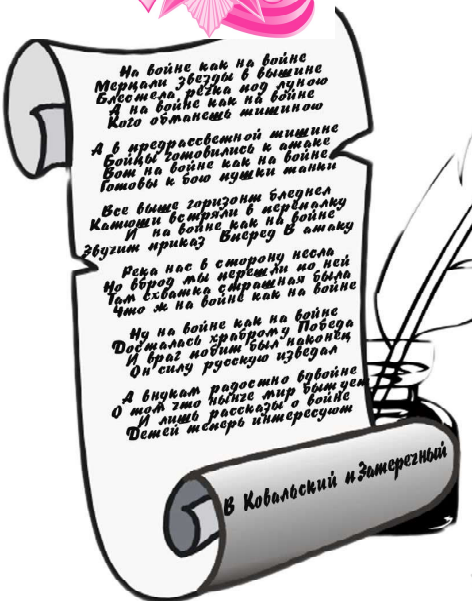 На войне как на войне
Мерцали звезды в вышине
Блестела, речка под луною
А на войне как на войне
Кого обманешь тишиною
А в предрассветной тишине
Бойцы готовились к атаке
Вот на войне как на войне
Готовы к бою пушки танки
Все выше горизонт бледнел
Катюши встряли в перепалку
И на войне как на войне
Звучит приказ Вперед В атаку
Река нас в сторону несла
Но вброд мы перешли по ней
Там схватка страшная была
Что ж на войне как на войне
Ну на войне как на войне
Досталась храброму Победа
И враг побит был наконец
Он силу русскую изведал
А внукам радостно вдвойне
О том что нынче мир бытует
И лишь рассказы о войне
Детей теперь интересуют
В Ковальский п Заперечный